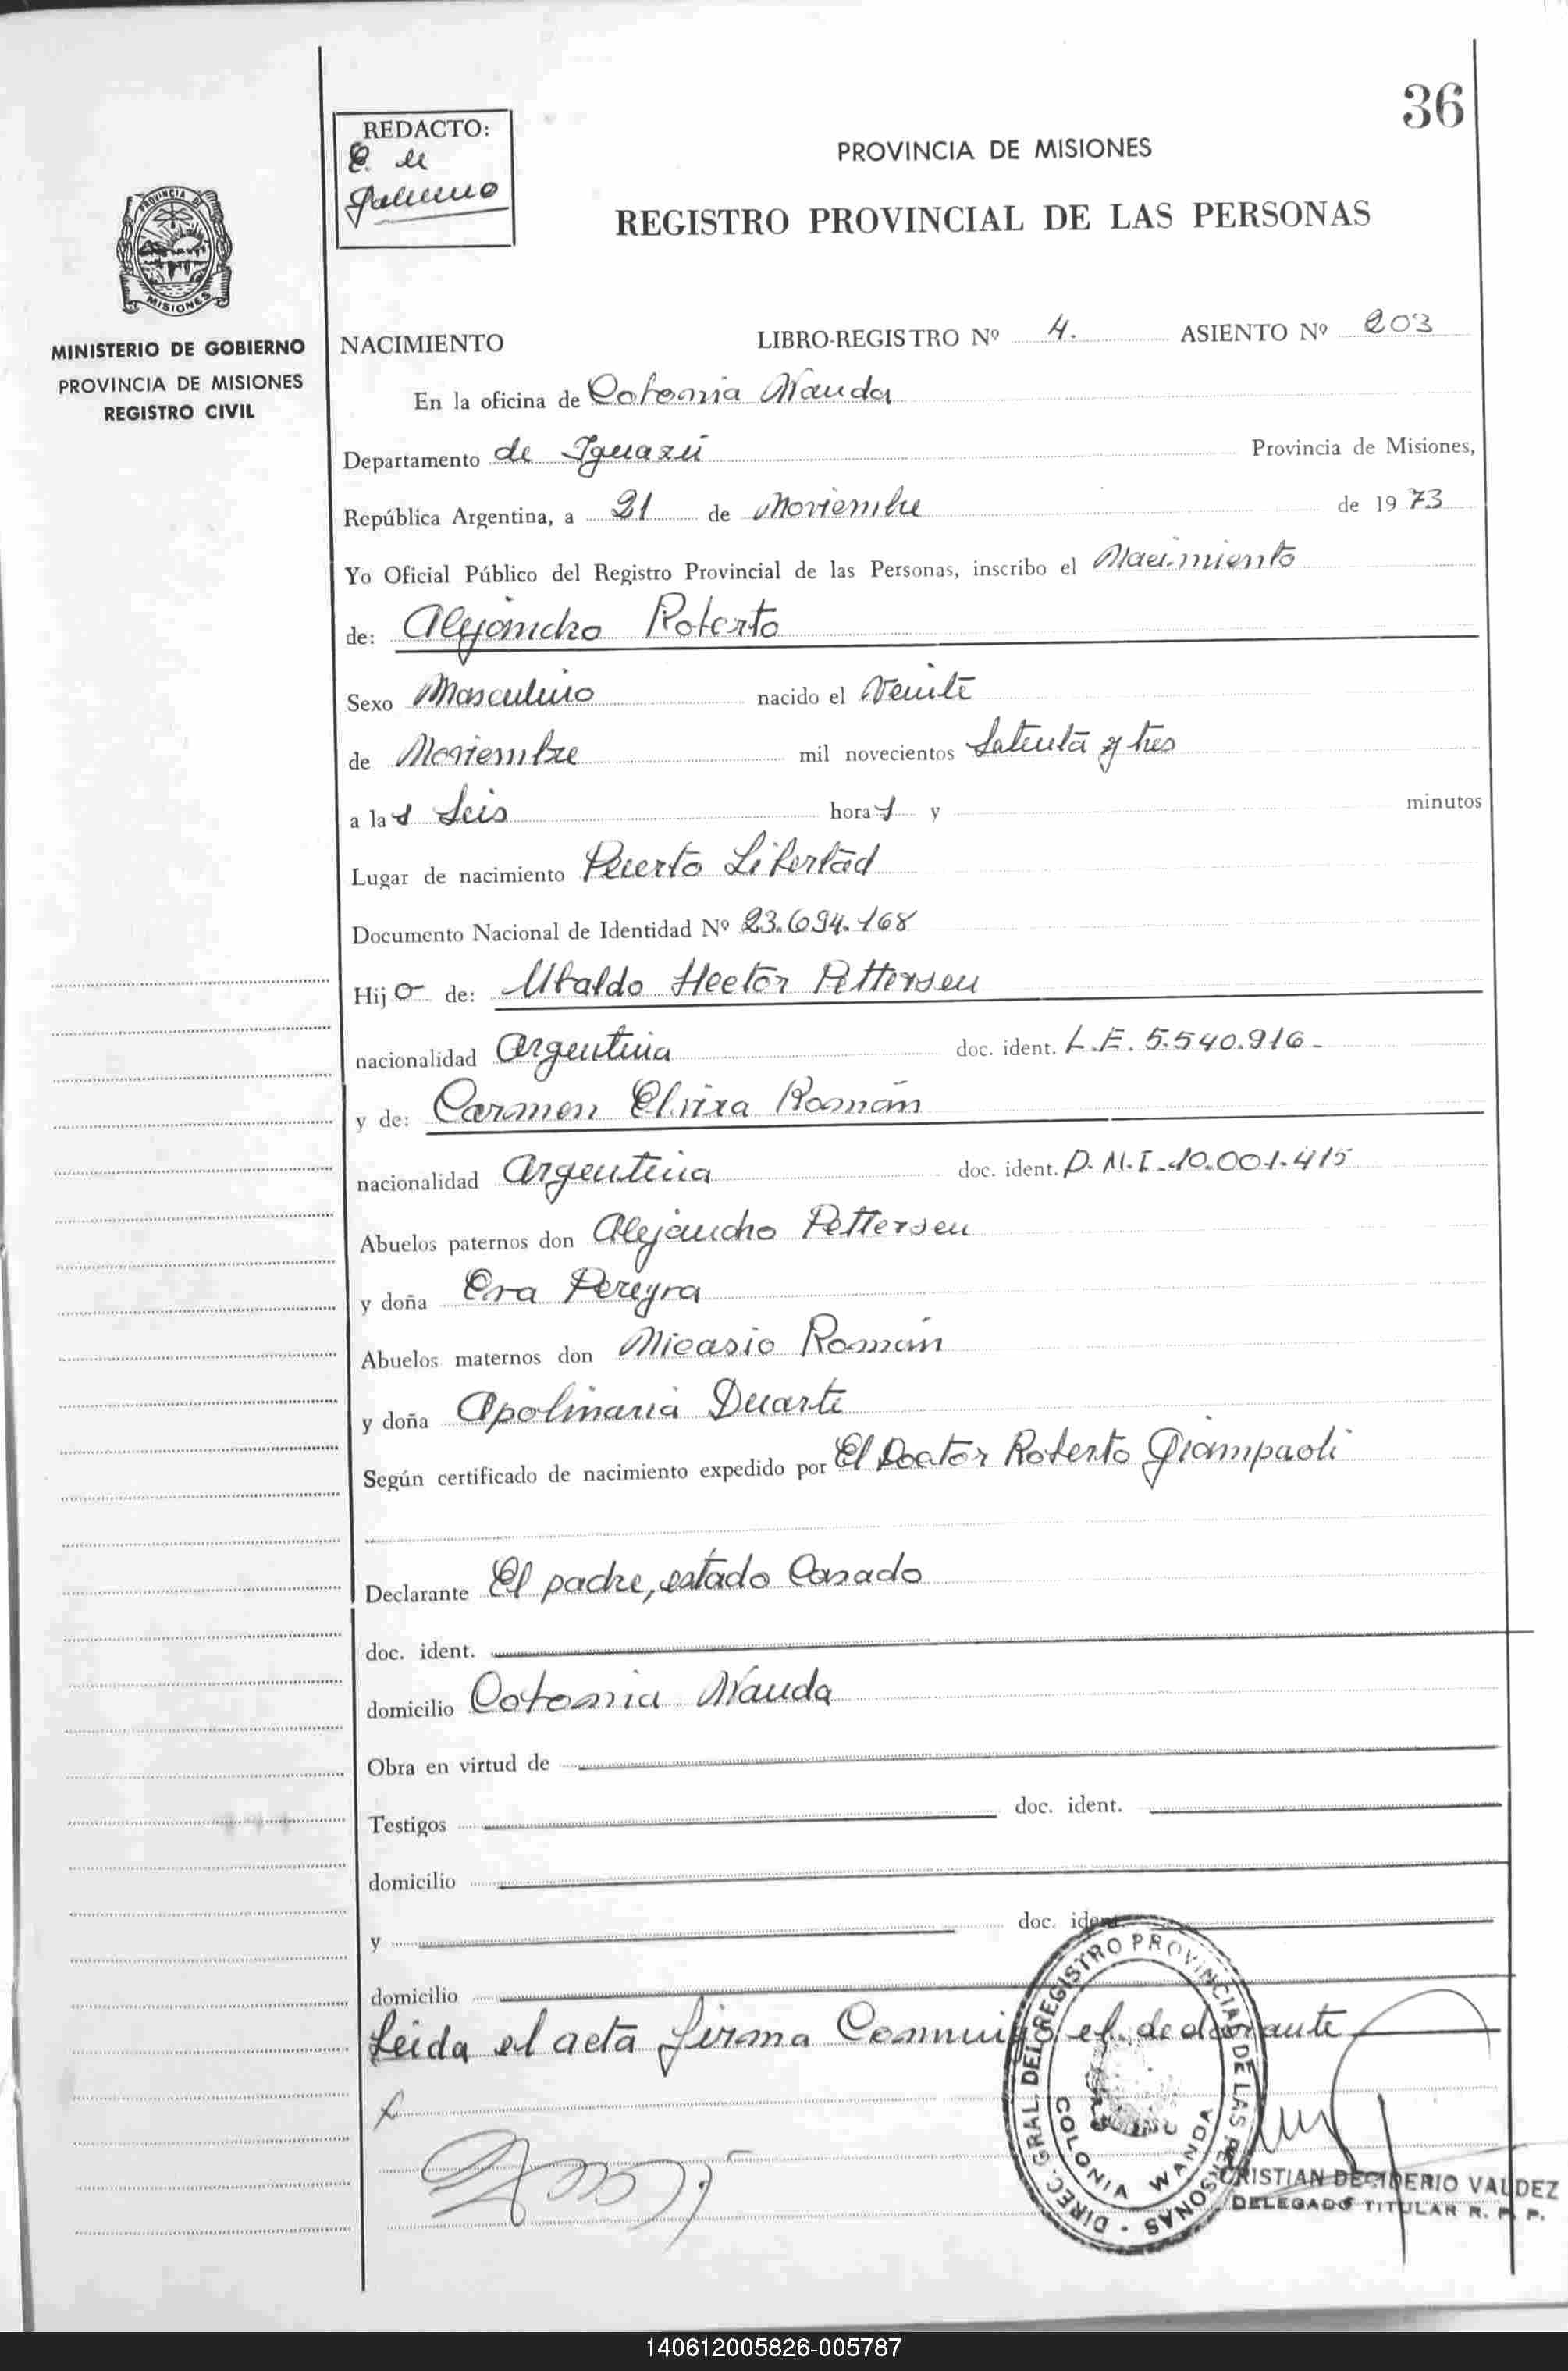 36
REDACTO:
PROVINCIA DE MISIONES
REGISTRO PROVINCIAL DE LAS PERSONAS
PROVINCIA DE
MISIONES
MINISTERIO DE GOBIERNO
PROVINCIA DE MISIONES
REGISTRO CIVIL
NACIMIENTO LIBRO-REGISTRO Nº 4. ASIENTO Nº 203
En la oficina de Colonia Wanda
Departamento de Iguazú Provincia de Misiones,
República Argentina, a 21 de Noviembre de 1973
Yo Oficial Público del Registro Provincial de las Personas, inscribo el Nacimiento
de: Alejandro Roberto
Sexo Masculino nacido el Veinte
de Noviembre mil novecientos Setenta y tres
a las Seis horas y minutos
Lugar de nacimiento Puerto Libertad
Documento Nacional de Identidad Nº 23.694.168
Hijo de: Ubaldo Hector Pettersen
nacionalidad Argentina doc. ident. L.E. 5.540.916-
y de: Carmen Elvira Román
nacionalidad Argentina doc. ident. D.N.I. 10.001.415
Abuelos paternos don Alejandro Pettersen
y doña Eva Pereyra
Abuelos maternos don Nicasio Román
y doña Apolinaria Duarte
Según certificado de nacimiento expedido por El Doctor Roberto Giampaoli
Declarante El padre, estado Casado
doc. ident.
domicilio Colonia Wanda
Obra en virtud de
Testigos doc. ident.
domicilio
y doc. ident.
domicilio
Leida el acta firma Conmigo el declarante
DIREC. GRAL. DEL REGISTRO PROVINCIAL DE LAS PERSONAS
COLONIA WANDA
CRISTIAN DECIDERIO VALDEZ
DELEGADO TITULAR R. P. P.
140612005826-005787